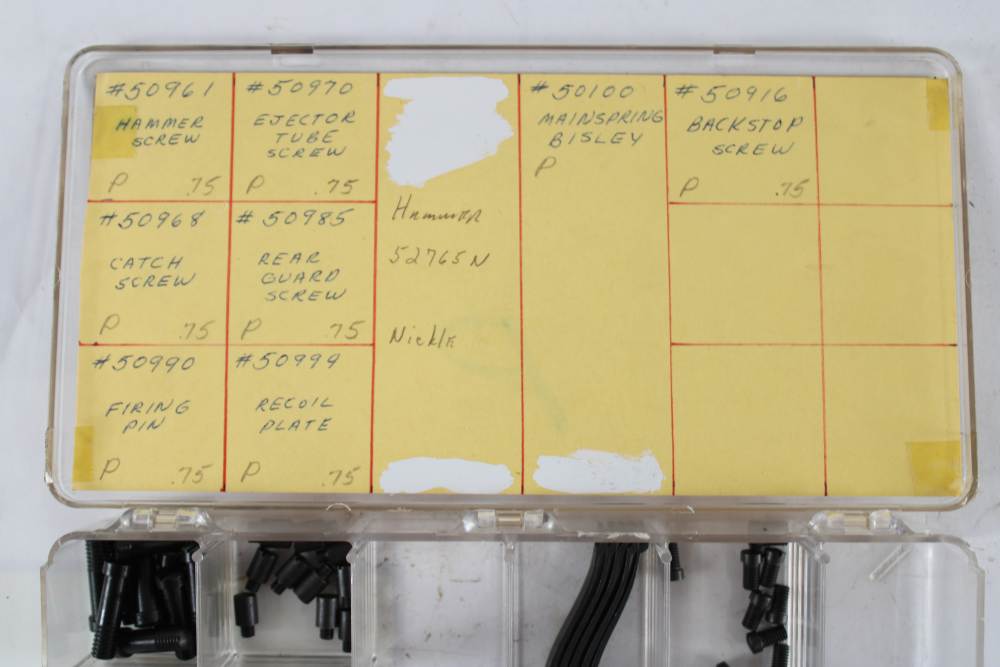 #50961
HAMMER
SCREW
P .75
#50970
EJECTOR
TUBE
SCREW
P .75
#50100
MAINSPRING
BISLEY
P
#50916
BACKSTOP
SCREW
P .75
#50968
CATCH
SCREW
P .75
#50985
REAR
GUARD
SCREW
P .75
Hammer
52765N
Nickle
#50990
FIRING
PIN
P .75
#50999
RECOIL
PLATE
P .75